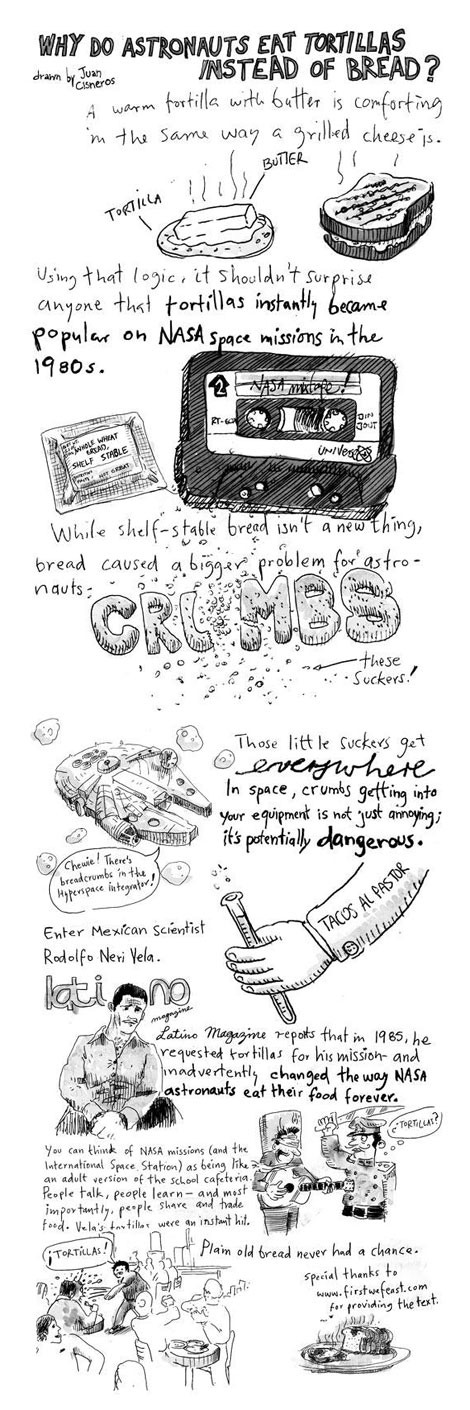 WHY DO ASTRONAUTS EAT TORTILLAS
INSTEAD OF BREAD?
drawn by Juan
Cisneros
A warm tortilla with butter is comforting
in the same way a grilled cheese is.
BUTTER
TORTILLA
Using that logic, it shouldn't surprise
anyone that tortillas instantly became
popular on NASA space missions in the
1980s.
2
NASA mixtape!
WHOLE WHEAT
BREAD,
SHELF STABLE
While shelf-stable bread isn't a new thing,
bread caused a bigger problem for astro-
nauts:
CRUMBS
these
suckers!
Those little suckers get
everywhere
In space, crumbs getting into
your equipment is not just annoying;
it's potentially dangerous.
Chewie! There's
breadcrumbs in the
Hyperspace integrator!
TACOS AL PASTOR
Enter Mexican Scientist
Rodolfo Neri Vela.
latino
magazine
Latino Magazine reports that in 1985, he
requested tortillas for his mission and
inadvertently changed the way NASA
astronauts eat their food forever.
¿TORTILLAS?
You can think of NASA missions (and the
International Space Station) as being like
an adult version of the school cafeteria.
People talk, people learn — and most
importantly, people share and trade
food. Vela's tortillas were an instant hit.
¡TORTILLAS!
Plain old bread never had a chance.
special thanks to
www.firstwefeast.com
for providing the text.